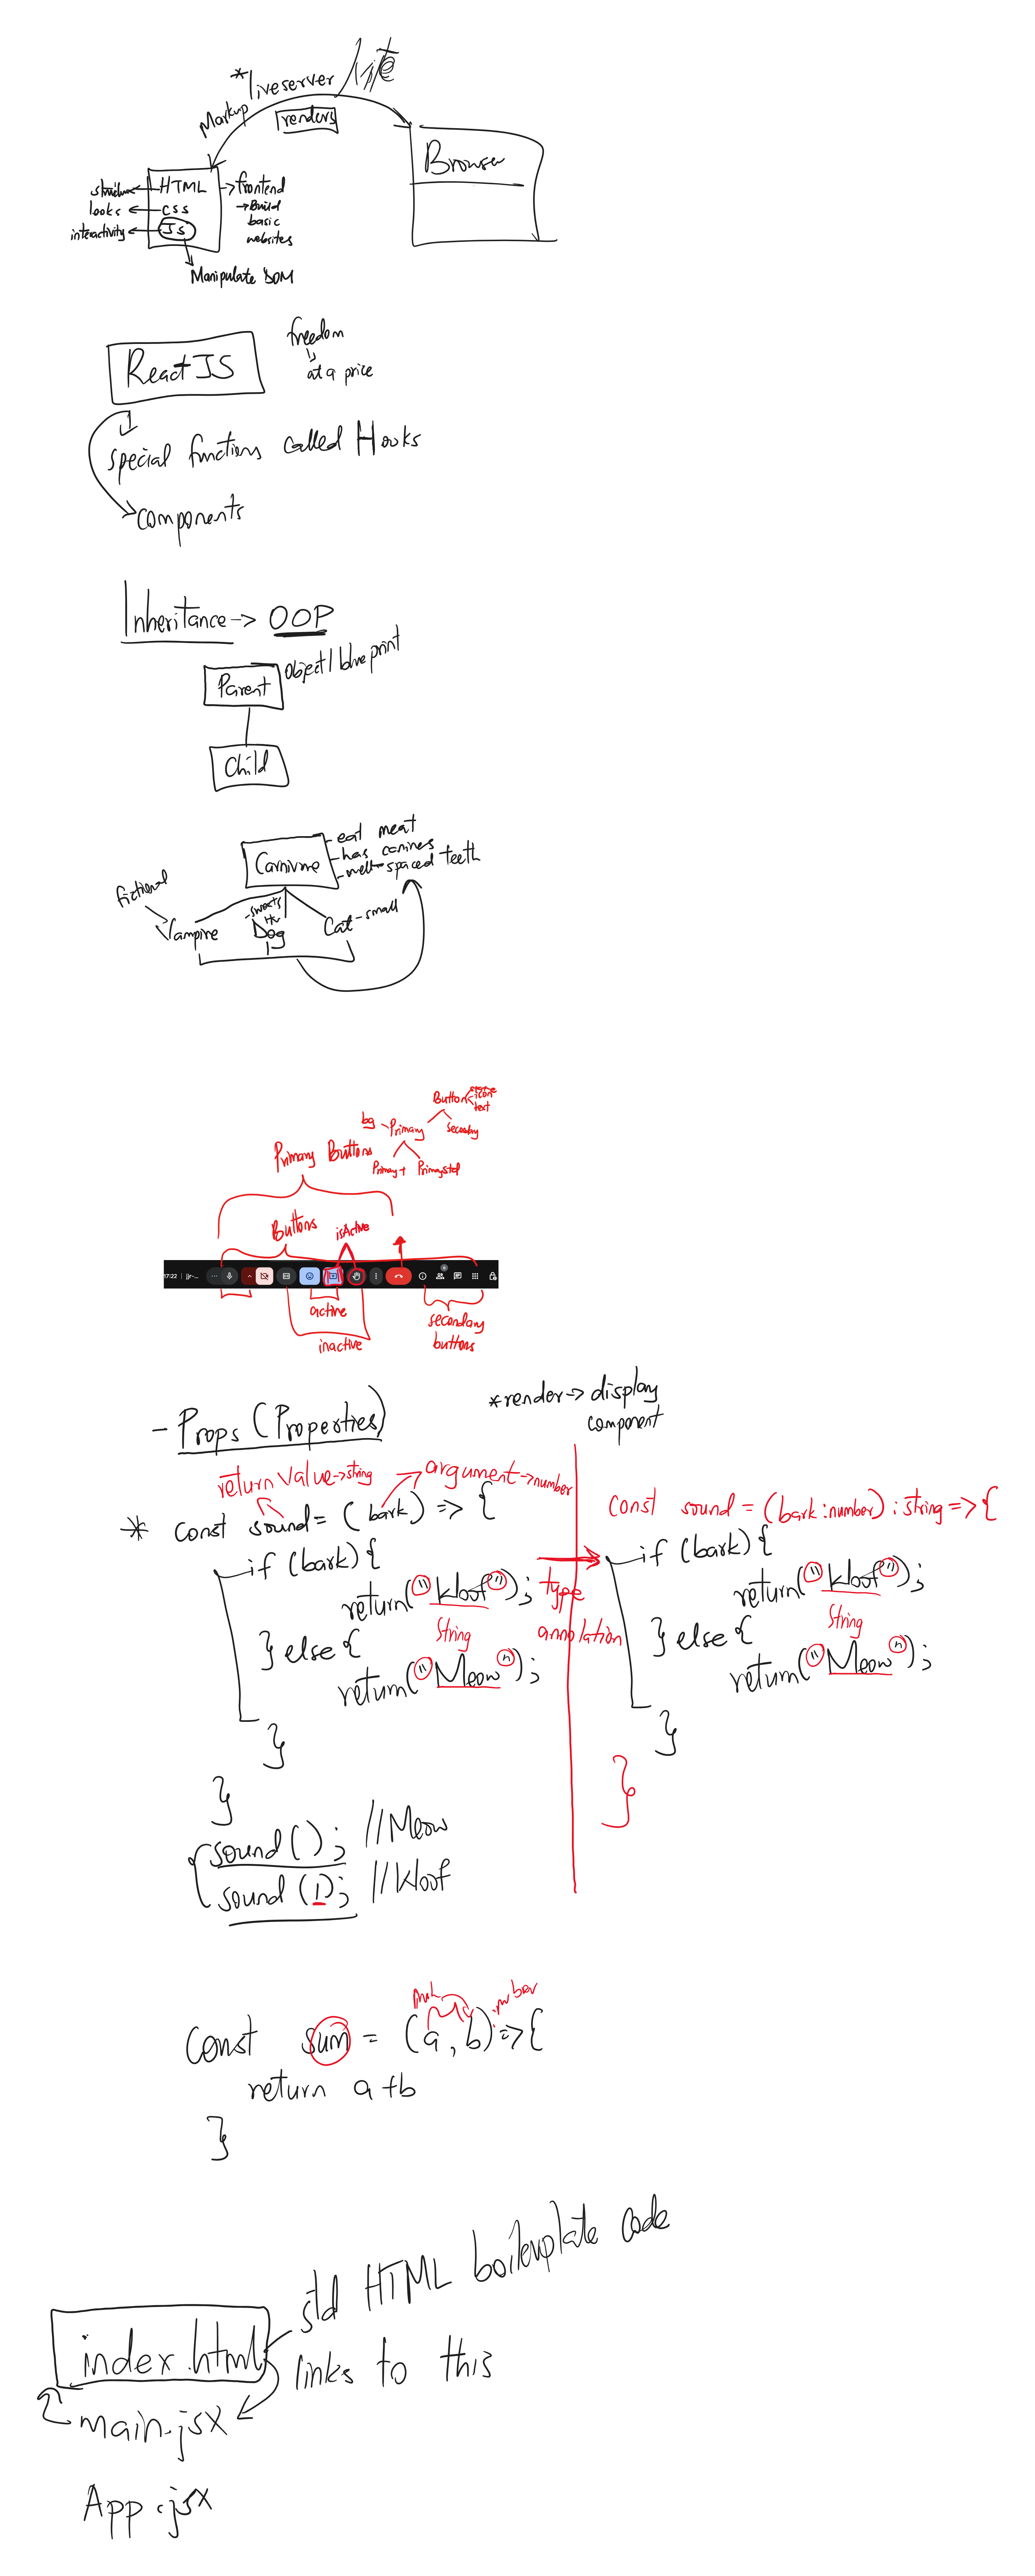 *liveserver / Vite
Markup
renders
Browser
structure HTML frontend
looks CSS Build
interactivity JS basic
websites
Manipulate DOM
ReactJS
freedom
at a price
special functions called Hooks
components
Inheritance -> OOP
object/blueprint
Parent
Child
Carnivore
- eat meat
- has canines
- well-spaced teeth
fictional
Vampire
Dog
Cat - small
Button
icon
text
bg Primary secondary
Primary Buttons
Primary+
Buttons isActive
17:22
active
inactive
secondary
buttons
- Props (Properties)
*render -> display
component
return value -> string
argument -> number
* const sound = (bark) => {
if (bark) {
return("kloof");
String
} else {
return("Meow");
}
}
type
annotation
const sound = (bark:number):string => {
if (bark) {
return("kloof");
String
} else {
return("Meow");
}
}
sound(); //Meow
sound(1); //kloof
const sum = (a, b) => {
return a+b
}
std HTML boilerplate code
index.html
links to this
main.jsx
App.jsx